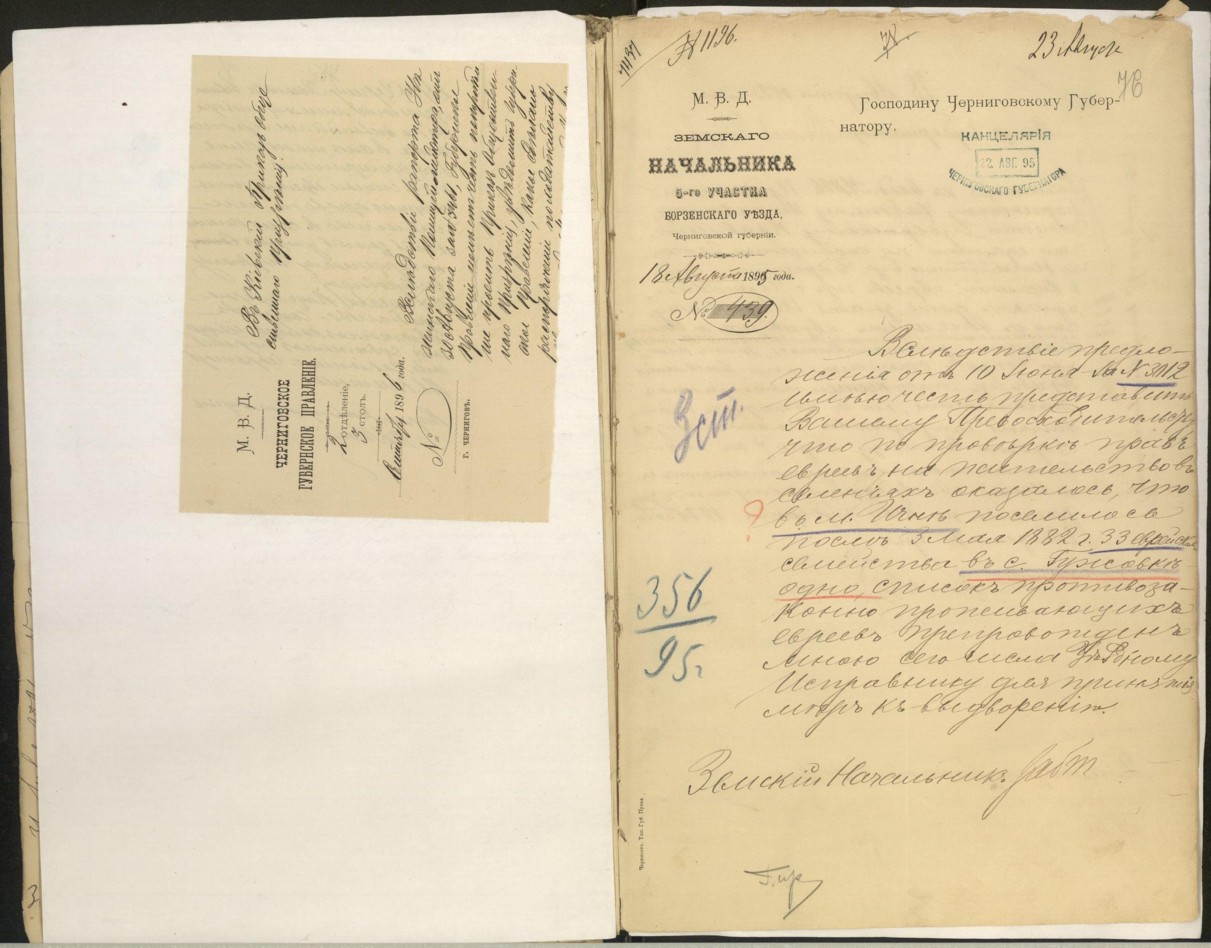 М. В. Д.
ЧЕРНИГОВСКОЕ
ГУБЕРНСКОЕ ПРАВЛЕНІЕ.
2 отдѣленіе,
3 столъ.
189 6 года.
№
г. ЧЕРНИГОВЪ.
Въ Кіевскій Приказъ обще
ственнаго Призрѣнія.
Вслѣдствіе рапорта
Губернское
Правленіе имѣетъ честь
проситъ Приказъ Обществен
наго Призрѣнія, увѣдомить Губерн
ское Правленіе, какое
распоряженіе по ходатайству
№ 1196.
23 Августа
М. В. Д.
ЗЕМСКАГО
НАЧАЛЬНИКА
5-го УЧАСТКА
БОРЗЕНСКАГО УѢЗДА,
Черниговской губерніи.
18 Августа 1895 года.
№ 439.
Господину Черниговскому Губер-
натору.
КАНЦЕЛЯРІЯ
22 АВГ. 95
ЧЕРНИГОВСКАГО ГУБЕРНАТОРА
3 ст.
356
95 г
Вслѣдствіе предло-
женія отъ 10 Іюня за № 3112
имѣю честь представить
Вашему Превосходительству
что по провѣркѣ правъ
евреевъ на жительство въ
селеніяхъ оказалось, что
въ м. Ичнѣ поселилось
послѣ 3 Мая 1882 г. 33 еврейск.
семейства въ с. Гужовкѣ
одно, списокъ противоза-
конно проживающихъ
евреевъ препровожденъ
мною сего числа Уѣздному
Исправнику для принятія
мѣръ къ выдворенію.
Земскій Начальникъ
Чернигов. Тип. Губ. Правл.